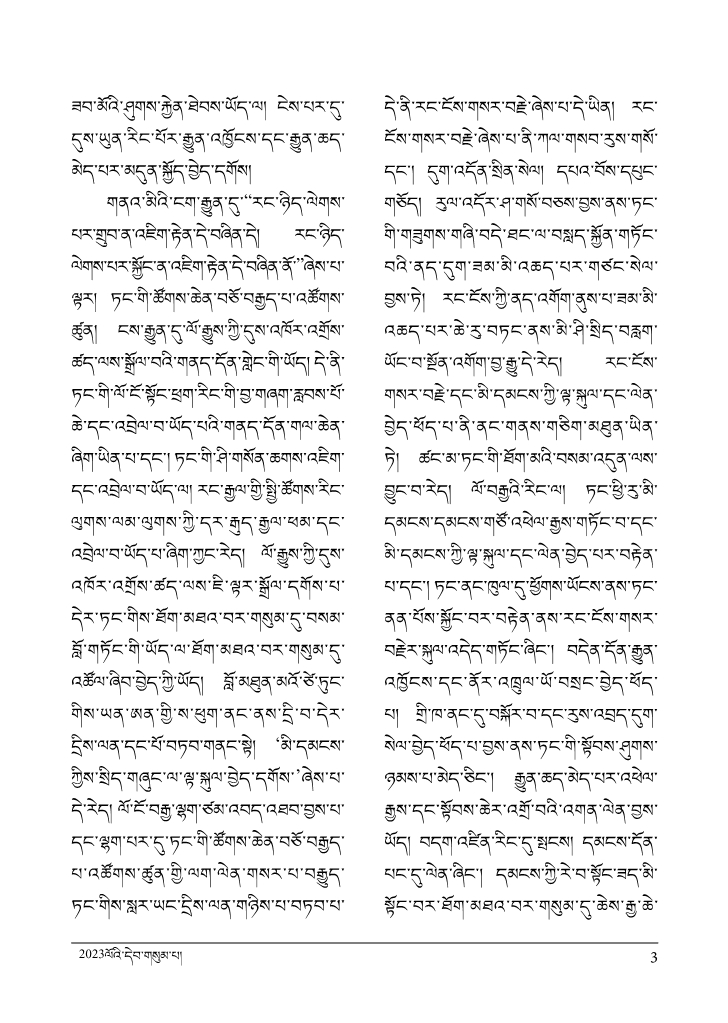 ཟབ་མོའི་ཤུགས་རྐྱེན་ཐེབས་ཡོད་ལ། ངེས་པར་དུ་
དུས་ཡུན་རིང་པོར་རྒྱུན་འཁྱོངས་དང་རྒྱུན་ཆད་
མེད་པར་མདུན་སྐྱོད་བྱེད་དགོས།
གནའ་མིའི་ངག་རྒྱུན་དུ་“རང་ཉིད་ལེགས་
པར་གྲུབ་ན་འཇིག་རྟེན་དེ་བཞིན་དེ། རང་ཉིད་
ལེགས་པར་སྐྱོང་ན་འཇིག་རྟེན་དེ་བཞིན་ནོ་”ཞེས་པ་
ལྟར། ཏང་གི་ཚོགས་ཆེན་བཅོ་བརྒྱད་པ་འཚོགས་
ཚུན། ངས་རྒྱུན་དུ་ལོ་རྒྱུས་ཀྱི་དུས་འཁོར་འགྲོས་
ཚད་ལས་སྒྲོལ་བའི་གནད་དོན་གླེང་གི་ཡོད། དེ་ནི་
ཏང་གི་ལོ་ངོ་སྟོང་ཕྲག་རིང་གི་བྱ་གཞག་རླབས་པོ་
ཆེ་དང་འབྲེལ་བ་ཡོད་པའི་གནད་དོན་གལ་ཆེན་
ཞིག་ཡིན་པ་དང་། ཏང་གི་ཤི་གསོན་ཆགས་འཇིག་
དང་འབྲེལ་བ་ཡོད་ལ། རང་རྒྱལ་གྱི་སྤྱི་ཚོགས་རིང་
ལུགས་ལམ་ལུགས་ཀྱི་དར་རྒུད་རྒྱལ་ཕམ་དང་
འབྲེལ་བ་ཡོད་པ་ཞིག་ཀྱང་རེད། ལོ་རྒྱུས་ཀྱི་དུས་
འཁོར་འགྲོས་ཚད་ལས་ཇི་ལྟར་སྒྲོལ་དགོས་པ་
དེར་ཏང་གིས་ཐོག་མཐའ་བར་གསུམ་དུ་བསམ་
བློ་གཏོང་གི་ཡོད་ལ་ཐོག་མཐའ་བར་གསུམ་དུ་
འཚོལ་ཞིབ་བྱེད་ཀྱི་ཡོད། བློ་མཐུན་མའོ་ཙེ་ཏུང་
གིས་ཡན་ཨན་གྱི་ས་ཕུག་ནང་ནས་དྲི་བ་དེར་
དྲིས་ལན་དང་པོ་བཏབ་གནང་སྟེ། ‘མི་དམངས་
ཀྱིས་སྲིད་གཞུང་ལ་ལྟ་སྐུལ་བྱེད་དགོས་’ཞེས་པ་
དེ་རེད། ལོ་ངོ་བརྒྱ་ལྷག་ཙམ་འབད་འཐབ་བྱས་པ་
དང་ལྷག་པར་དུ་ཏང་གི་ཚོགས་ཆེན་བཅོ་བརྒྱད་
པ་འཚོགས་ཚུན་གྱི་ལག་ལེན་གསར་པ་བརྒྱུད་
ཏང་གིས་སླར་ཡང་དྲིས་ལན་གཉིས་པ་བཏབ་པ་
དེ་ནི་རང་ངོས་གསར་བརྗེ་ཞེས་པ་དེ་ཡིན། རང་
ངོས་གསར་བརྗེ་ཞེས་པ་ནི་ཀལ་གསབ་རུས་གསོ་
དང་། དུག་འདོན་སྲིན་སེལ། དཔའ་བོས་དཔུང་
གཅོད། རུལ་འདོར་ཤ་གསོ་བཅས་བྱས་ནས་ཏང་
གི་གཟུགས་གཞི་བདེ་ཐང་ལ་བསླད་སྐྱོན་གཏོང་
བའི་ནད་དུག་ཟམ་མི་འཆད་པར་གཙང་སེལ་
བྱས་ཏེ། རང་ངོས་ཀྱི་ནད་འགོག་ནུས་པ་ཟམ་མི་
འཆད་པར་ཆེ་རུ་བཏང་ནས་མི་ཤི་སྲིད་བརླག་
ཡོང་བ་སྔོན་འགོག་བྱ་རྒྱུ་དེ་རེད། རང་ངོས་
གསར་བརྗེ་དང་མི་དམངས་ཀྱི་ལྟ་སྐུལ་དང་ལེན་
བྱེད་ཕོད་པ་ནི་ནང་གནས་གཅིག་མཐུན་ཡིན་
ཏེ། ཚང་མ་ཏང་གི་ཐོག་མའི་བསམ་འདུན་ལས་
བྱུང་བ་རེད། ལོ་བརྒྱའི་རིང་ལ། ཏང་ཕྱི་རུ་མི་
དམངས་དམངས་གཙོ་འཕེལ་རྒྱས་གཏོང་བ་དང་
མི་དམངས་ཀྱི་ལྟ་སྐུལ་དང་ལེན་བྱེད་པར་བརྟེན་
པ་དང་། ཏང་ནང་ཁུལ་དུ་ཕྱོགས་ཡོངས་ནས་ཏང་
ནན་པོས་སྐྱོང་བར་བརྟེན་ནས་རང་ངོས་གསར་
བརྗེར་སྐུལ་འདེད་གཏོང་ཞིང་། བདེན་དོན་རྒྱུན་
འཁྱོངས་དང་ནོར་འཁྲུལ་ཡོ་བསྲང་བྱེད་ཕོད་
པ། གྲི་ཁ་ནང་དུ་བསྐོར་བ་དང་རུས་འབྲད་དུག་
སེལ་བྱེད་ཕོད་པ་བྱས་ནས་ཏང་གི་སྟོབས་ཤུགས་
ཉམས་པ་མེད་ཅིང་། རྒྱུན་ཆད་མེད་པར་འཕེལ་
རྒྱས་དང་སྟོབས་ཆེར་འགྲོ་བའི་འགན་ལེན་བྱས་
ཡོད། བདག་འཛིན་རིང་དུ་སྤངས། དམངས་དོན་
པང་དུ་ལེན་ཞིང་། དམངས་ཀྱི་རེ་བ་སྟོང་ཟད་མི་
སྟོང་བར་ཐོག་མཐའ་བར་གསུམ་དུ་ཆེས་རྒྱ་ཆེ་
2023ལོའི་དེབ་གསུམ་པ།
3